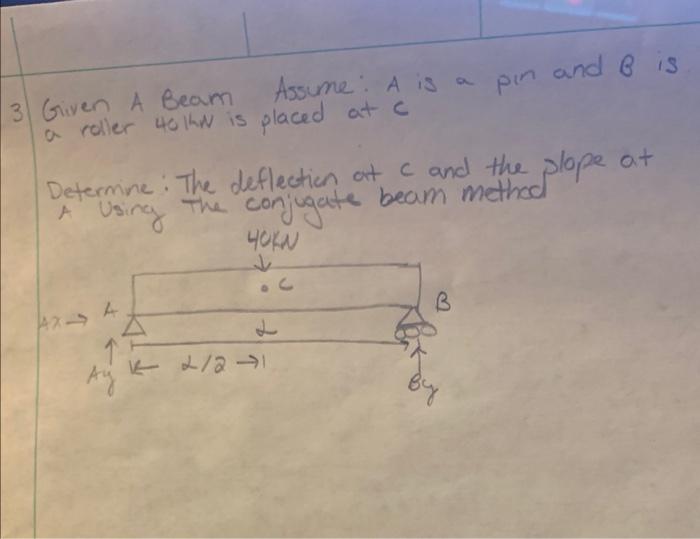 3 Given A Beam Assume: A is a pin and B is
a roller 40 kN is placed at C
Determine: The deflection at C and the slope at
A Using The conjugate beam method
40kN
• C
A
B
Ax →
L
Ay
L/2
By